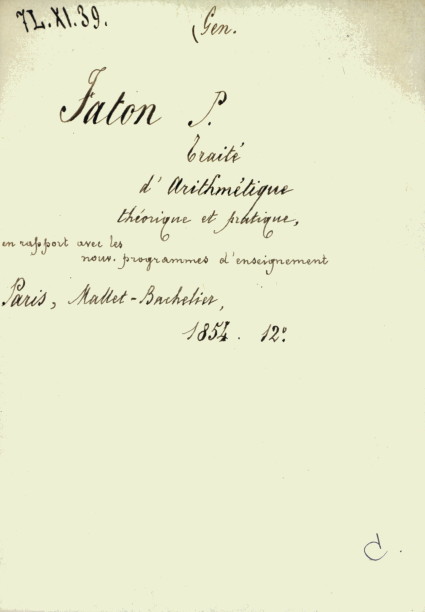 7L.XI.39.
Gen.
Faton P.
Traité
d'Arithmétique
théorique et pratique,
en rapport avec les
nouv. programmes d'enseignement
Paris, Mallet-Bachelier,
1854. 12°.
C.